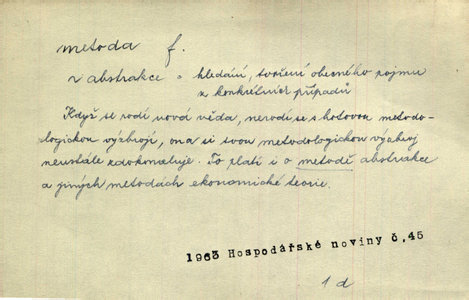 metoda f.
~ abstrakce = hledání, tvoření obecného pojmu
z konkrétních případů
Když se rodí nová věda, nerodí se s hotovou metodo-
logickou výzbrojí, ona si svou metodologickou výzbroj
neustále zdokonaluje. To platí i o metodě abstrakce
a jiných metodách ekonomické teorie.
1963 Hospodářské noviny č.45
1 d